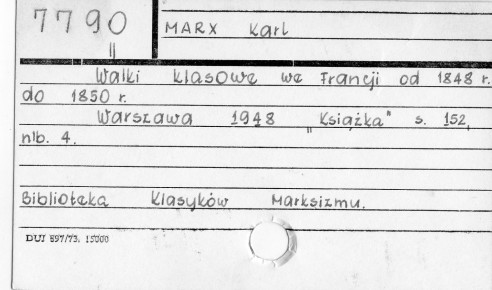 7790
II
MARX Karl
Walki klasowe we Francji od 1848 r.
do 1850 r.
Warszawa 1948 „Książka" s. 152,
nlb. 4.
Biblioteka Klasyków Marksizmu.
DUJ 897/73. 15000